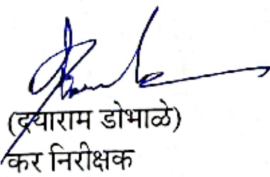 (दयाराम डोभाळे)
कर निरीक्षक